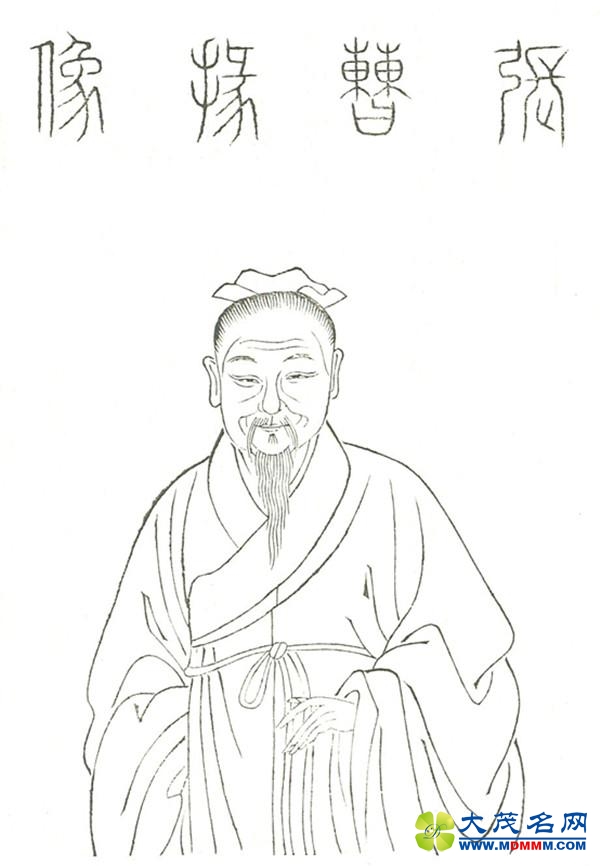 張曹掾像
大茂名网
www.MPMMM.com